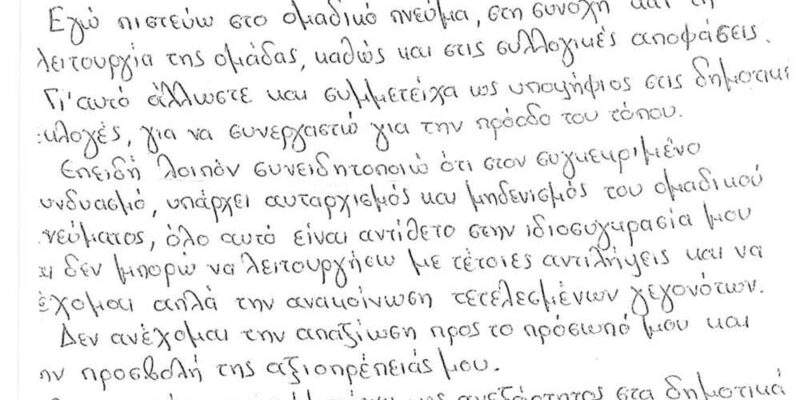 Εγώ πιστεύω στο ομαδικό πνεύμα, στη συνοχή και τη
λειτουργία της ομάδας, καθώς και στις συλλογικές αποφάσεις.
Γι' αυτό άλλωστε και συμμετείχα ως υποψήφιος στις δημοτικέ
κλογές, για να συνεργαστώ για την πρόοδο του τόπου.
Επειδή λοιπόν συνειδητοποιώ ότι στον συγκεκριμένο
υνδυασμό, υπάρχει αυταρχισμός και μηδενισμός του ομαδικού
νεύματος, όλο αυτό είναι αντίθετο στην ιδιοσυγκρασία μου
αι δεν μπορώ να λειτουργήσω με τέτοιες αντιλήψεις και να
έχομαι απλά την ανακοίνωση τετελεσμένων γεγονότων.
Δεν ανέχομαι την απαξίωση προς το πρόσωπό μου και
ην προσβολή της αξιοπρέπειάς μου.
ως ανεξάρτητος στα δημοτικά